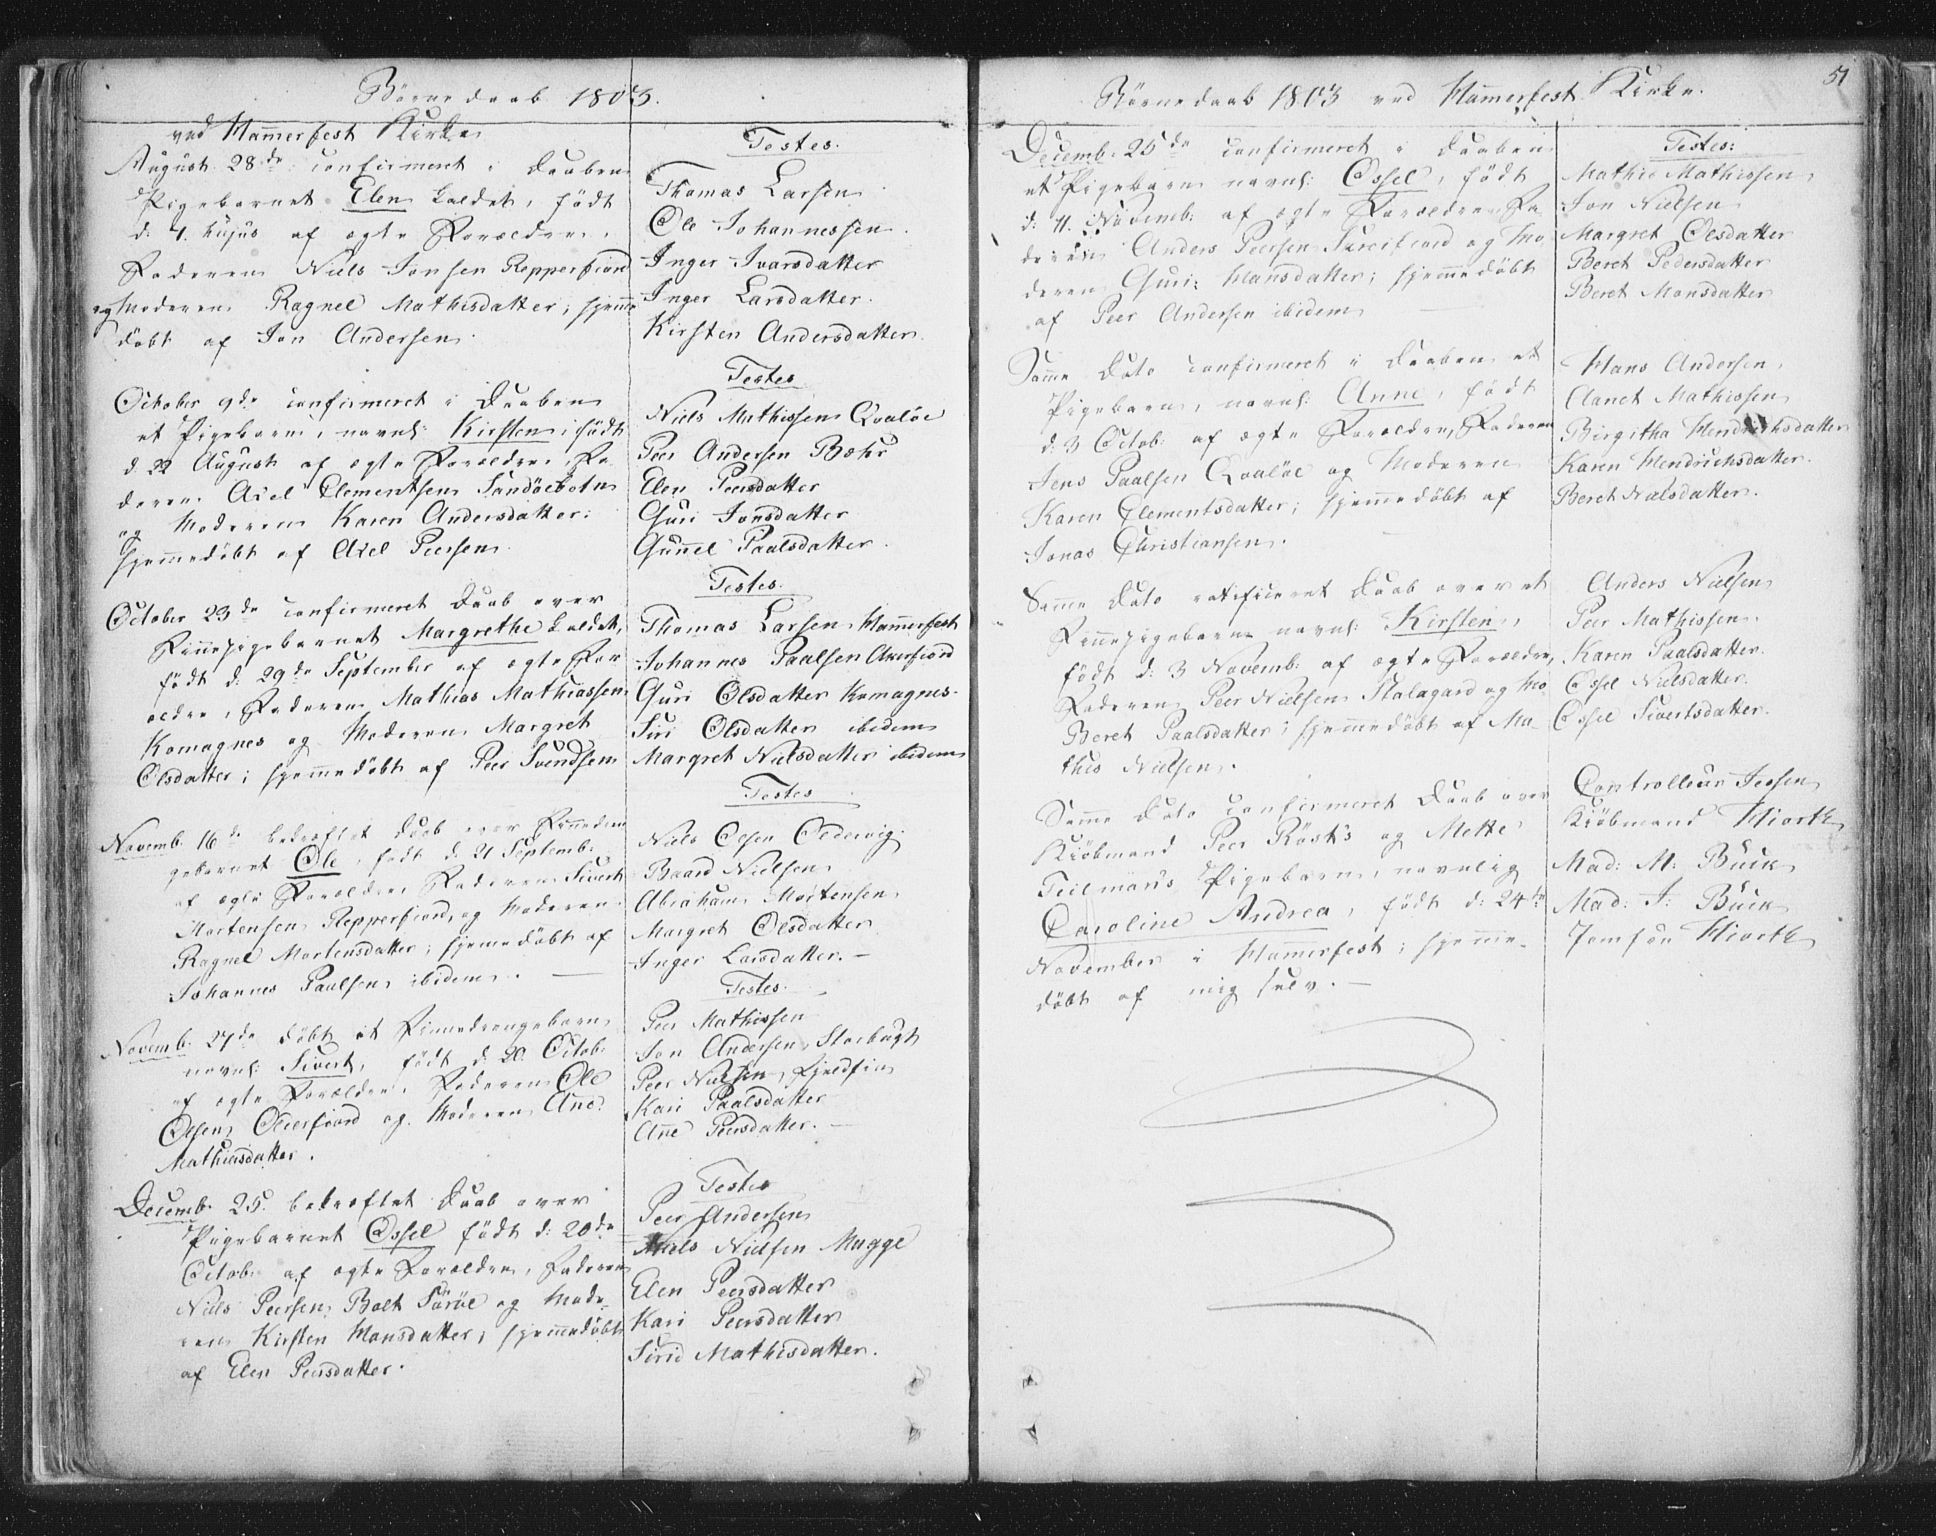 Børnedaab 1803.
ved Hamerfest Kirke
August 28de confirmeret i Daaben
Pigebarnet Elen kaldet, født
d: 1. hujus af ægte Forældre,
Faderen Niels Jonsen Repperfiord
og Moderen Ragnel Mathisdatter; hjemme
døbt af Jon Andersen.
Testes.
Thomas Larsen
Ole Johannessen.
Inger Ivarsdatter
Inger Larsdatter.
Kirsten Andersdatter.
October 9de confirmeret i Daaben
et Pigebarn, navnl: Kirsten, født
d. 22 August af ægte Forældre, Fa
deren Axel Clementsen Sandøebotn
og Moderen Karen Andersdatter:
hjemmedøbt af Axel Peersen.
Testes
Niels Mathissen Qvaløe
Peer Andersen Bæhr
Elen Peersdatter
Guri Jonsdatter
Gunnel Paalsdatter.
October 23de confirmeret Daab over
Finnepigebarnet Margrethe kaldet,
født d: 29de September af ægte For
ældre, Faderen Mathias Mathiassen
Komagnes og Moderen Margret
Olsdatter; hjemmedøbt af Peer Svendsen
Testes.
Thomas Larsen Hamerfest
Johannes Paalsen Akerfiord
Guri Olsdatter Komagnes.
Siri Olsdatter ibidem
Margret Nielsdatter ibidem
Novemb. 16de bekræftet Daab over Finnedren
gebarnet Ole, født d. 21 Septemb:
af ægte Forældre, Faderen Sivert
Mortensen Repperfiord, og Moderen
Ragnel Mortensdatter; hjemedøbt af
Johannes Paulsen ibidem.
Testes
Niels Olsen Oedervig.
Baard Nielsen
Abraham Mortensen
Margret Olsdatter
Inger Larsdatter.
Novemb. 27de døbt et Finnedrengebarn
navnl: Sivert, født d. 20. Octob:
af ægte Forældre, Faderen Ole
Olsen Olderfiord og Moderen Ane
Mathiasdatter.
Testes.
Peer Mathissen
Jon Andersen, Storbugt
Peer Nielsen, Fjeldfin
Kari Paalsdatter
Ane Peersdatter.
Decemb. 25. bekræftet Daab over
Pigebarnet Ossel født d: 20de
Octob: af ægte Forældre, Faderen
Niels Peersen Bolt Sørøe og Mode
ren Kirsten Monsdatter; hjemmedøbt
af Elen Peersdatter.
Testes
Peer Andersen
Niels Nielsen Mugge
Elen Peersdatter
Kari Peersdatter
Sirid Mathisdatter.
51
Børnedaab 1803 ved Hamerfest Kirke.
Decemb. 25de confirmeret i Daaben
et Pigebarn navnl: Ossel, født
d: 11. Novemb: af ægte Forældre, Fa
deren Anders Peersen Tureifiord og Mo
deren Guri Hansdatter; hjemmedøbt
af Peer Andersen ibidem
Testes:
Mathis Mathissen
Jon Nielsen
Margret Olsdatter
Beret Pedersdatter
Beret Monsdatter
Samme Dato confirmeret i Daaben et
Pigebarn, navnl: Anne, født
d: 3 Octob: af ægte Forældre, Faderen
Jens Paalsen Qvaløe og Moderen
Karen Clementsdatter; hjemmedøbt af
Jonas Christiansen.
Hans Andersen
Clanet Mathissen
Birgitha Hendrichsdatter
Karen Hendrichsdatter.
Beret Nielsdatter.
Samme Dato ratificeret Daab over et
Finnepigebarn navnl: Kirsten,
født d: 3 Novemb: af ægte Forældre,
Faderen Peer Nielsen Stalagard og Mo
Beret Paalsdatter; hjemmedøbt af Ma-
this Nielsen.
Anders Nielsen
Peer Mathissen.
Karen Paalsdatter.
Ossel Nielsdatter.
Ossel Sivertsdatter.
Samme Dato confirmeret Daab over
Kiøbmand Peer Røst's og Mette
Teilman's Pigebarn, navnlig
Caroline Andrea, født d: 24de
November i Hamerfest; hjemme-
døbt af mig selv.
Controlleur Jessen
Kiøbmand Hiorth
Mad: M. Buck
Mad: J: Buck
Jomfru Hiorth